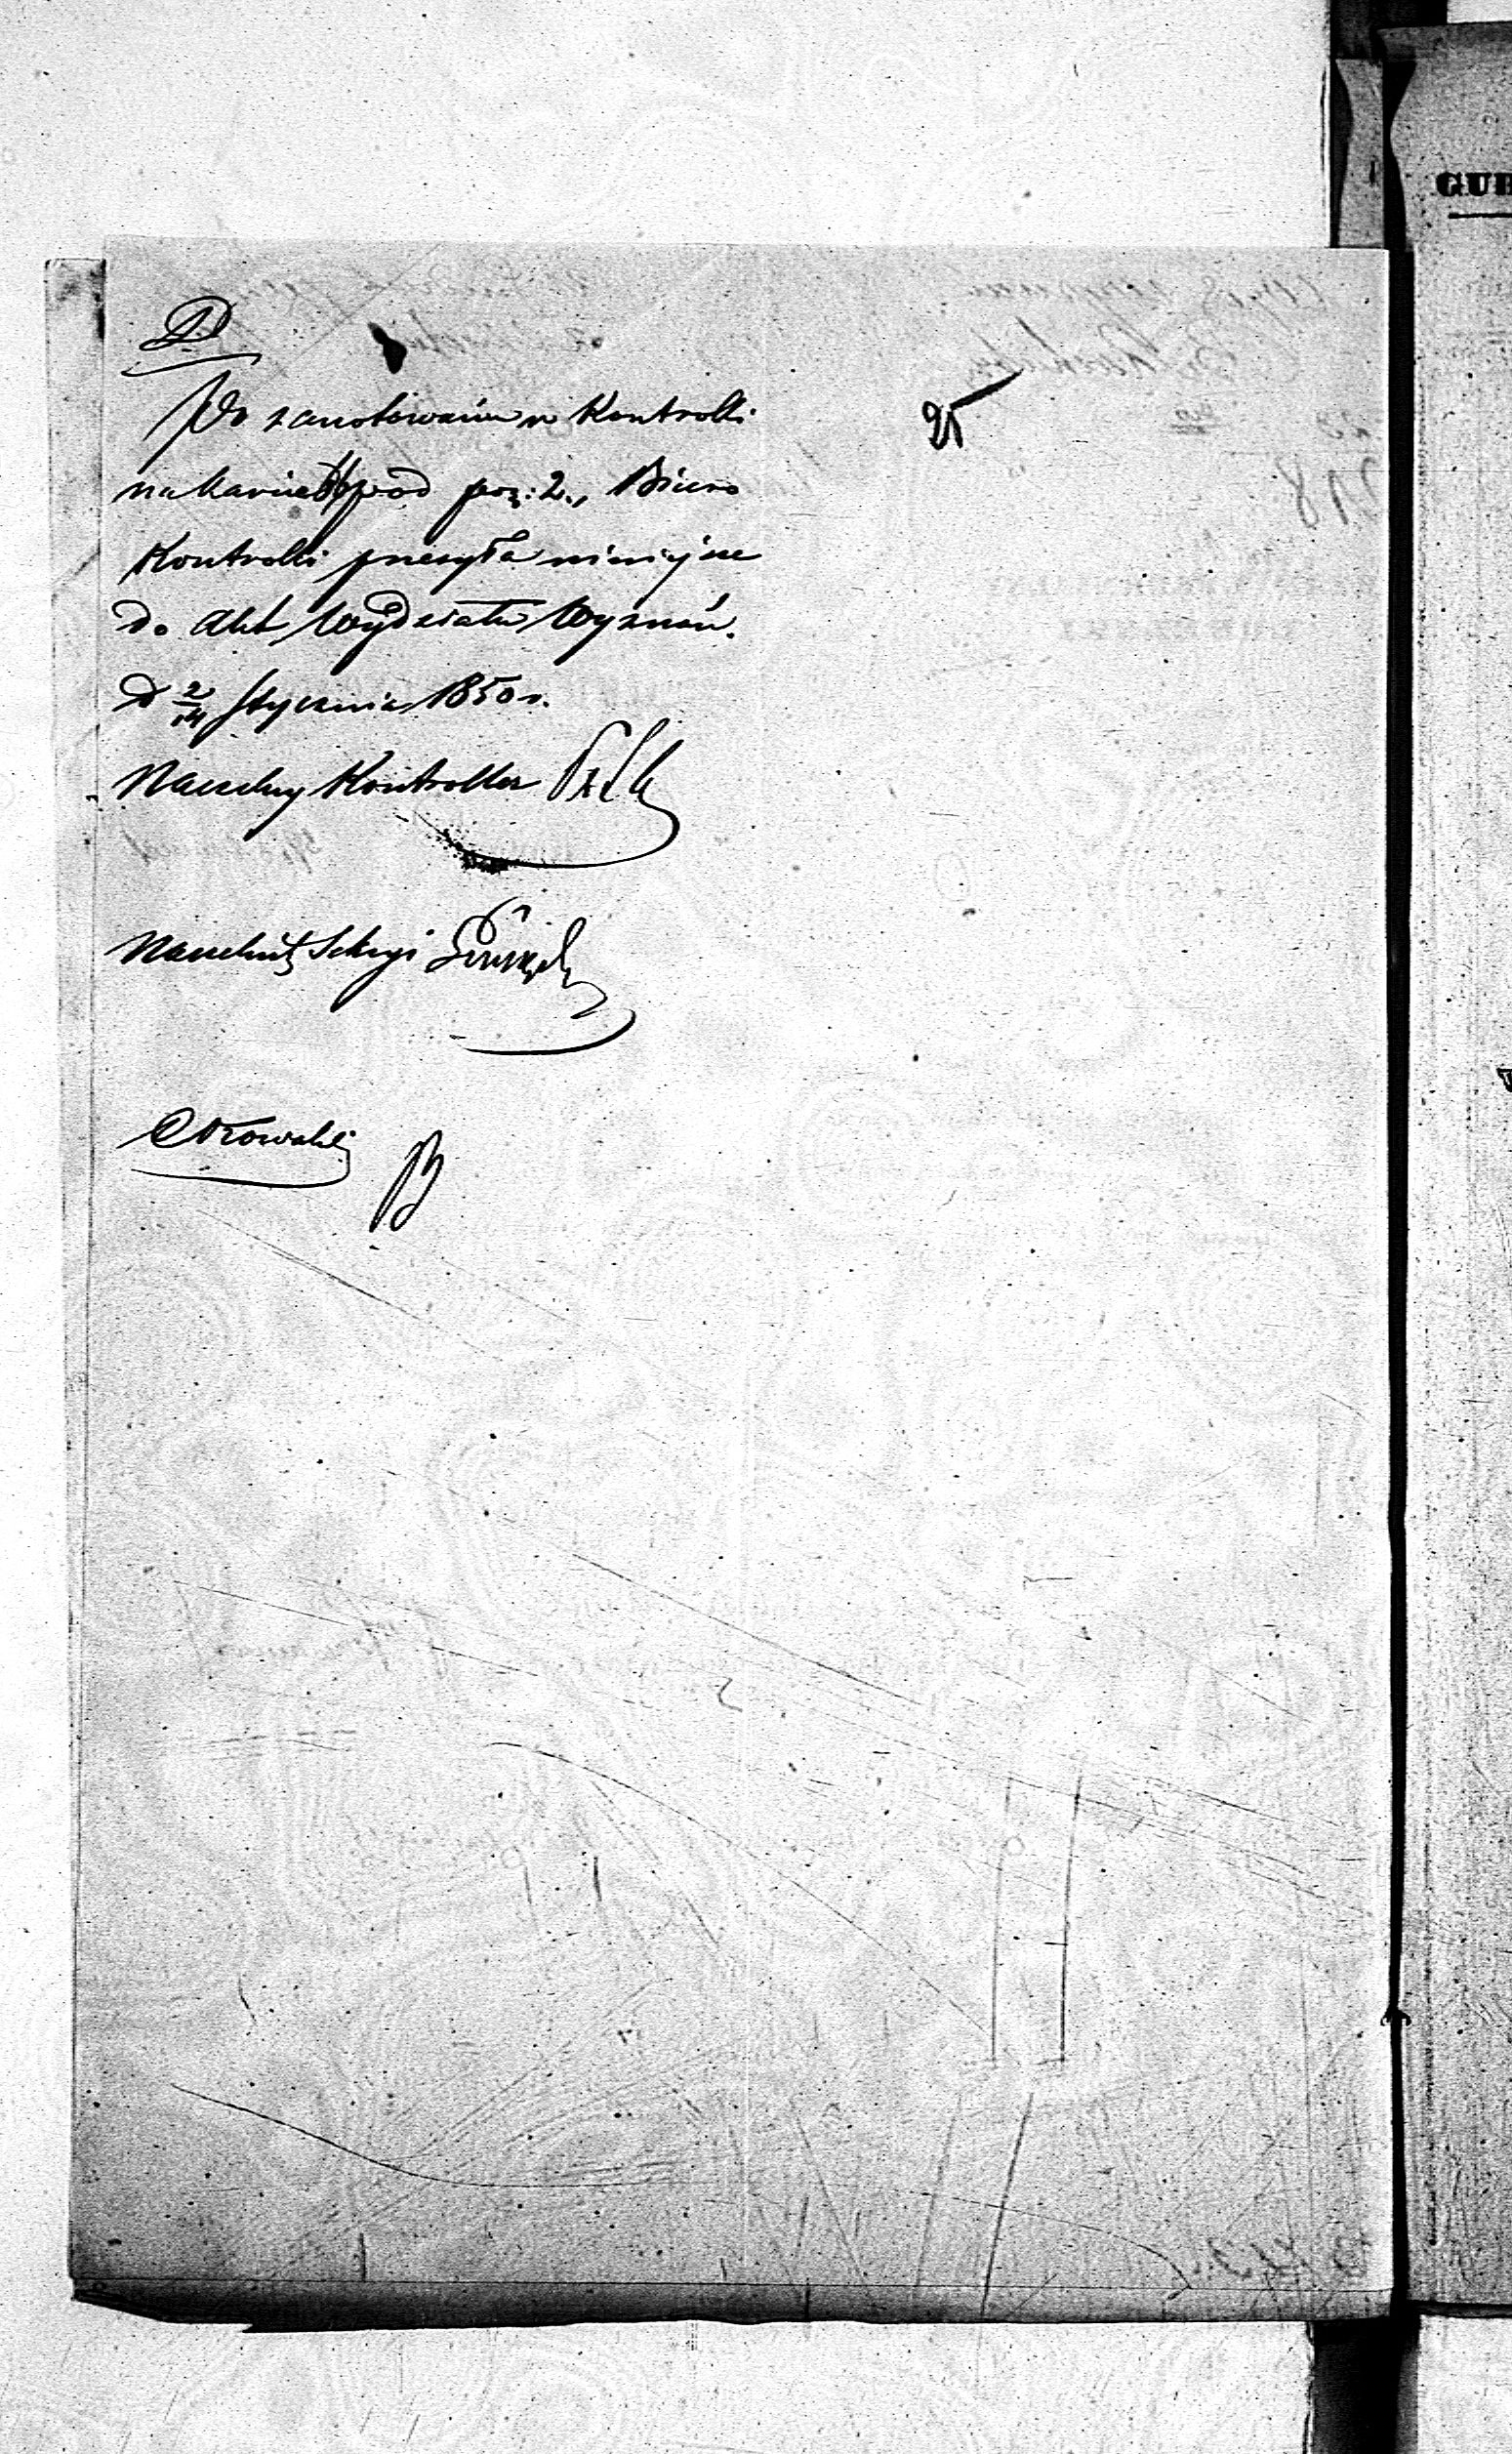 Po zanotowaniu w Kontrolli
na karcie pod poz: 2., Biuro
Kontrolli przesyła niniejsze
do Akt Wydziału Wyznań.
D 2/14 Stycznia 1850 r.
Naczelny Kontroller
Naczelnik Sekcyi
25
GUB